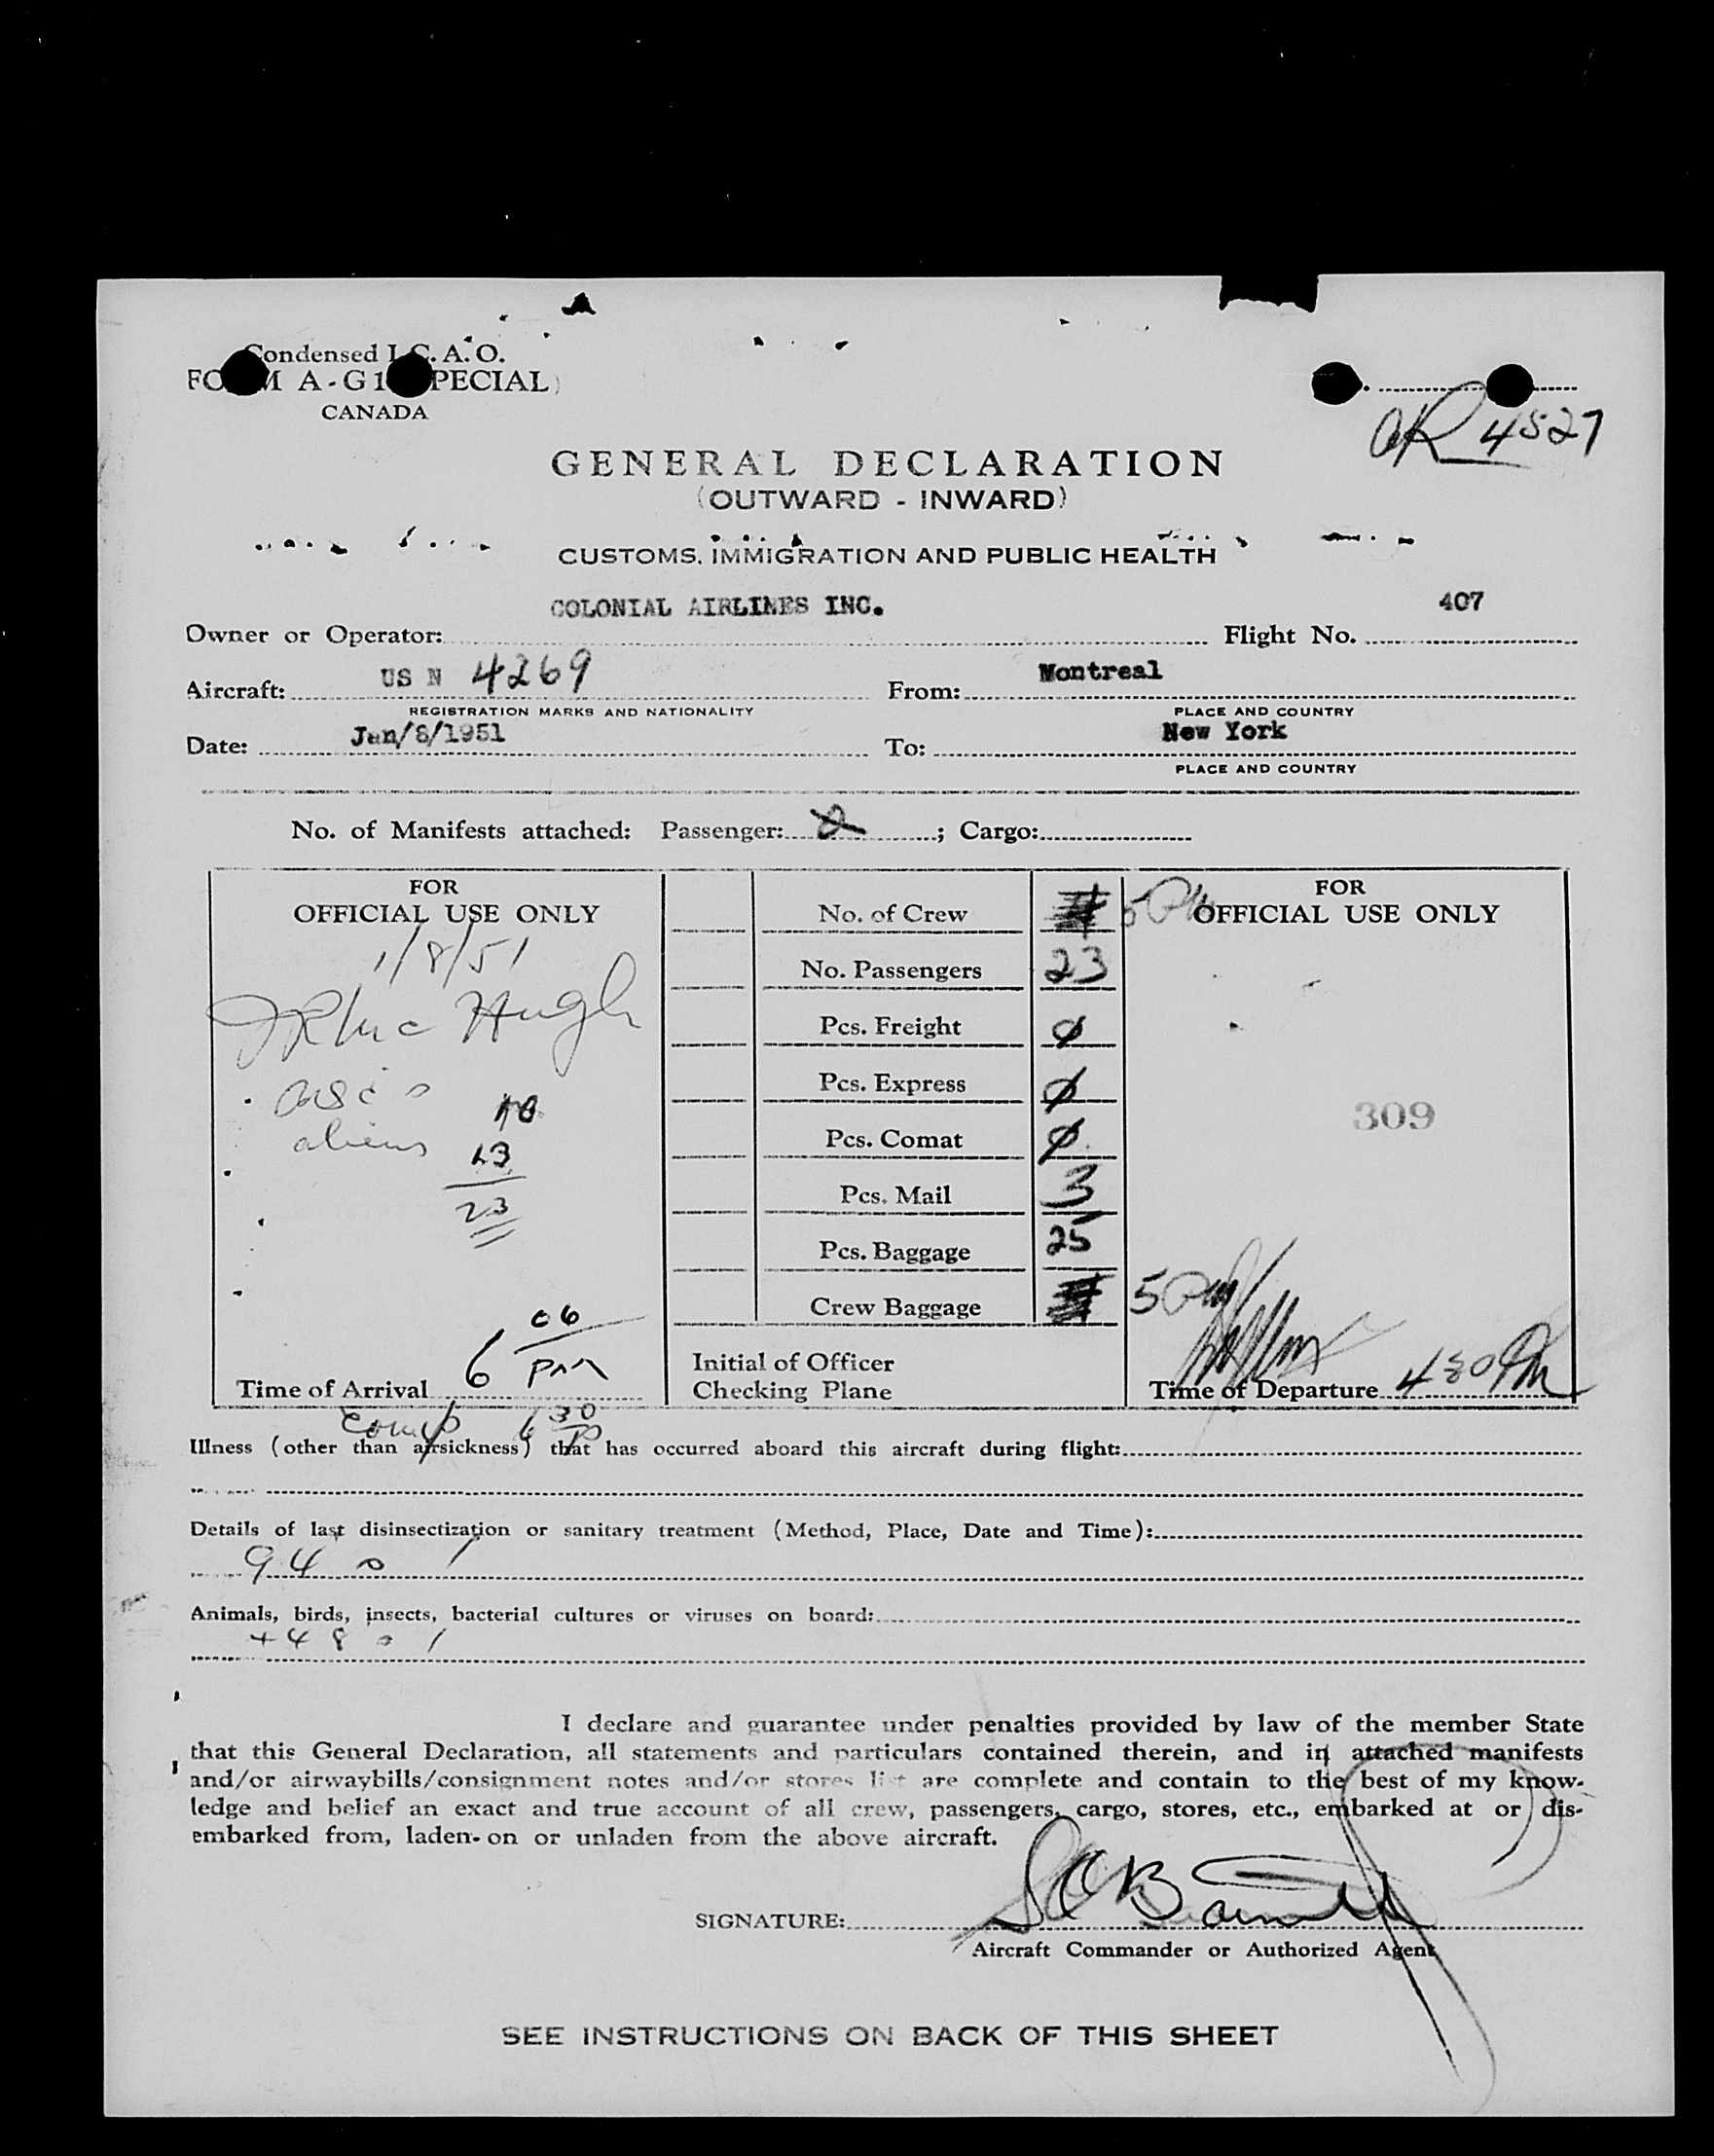 Condensed I.C.A.O.
FORM A-G1 (SPECIAL)
CANADA
4527
GENERAL DECLARATION
(OUTWARD - INWARD)
CUSTOMS, IMMIGRATION AND PUBLIC HEALTH
COLONIAL AIRLINES INC. 407
Owner or Operator: Flight No.
Aircraft: US N 4269 From: Montreal
REGISTRATION MARKS AND NATIONALITY PLACE AND COUNTRY
Date: Jan/8/1951 To: New York
PLACE AND COUNTRY
No. of Manifests attached: Passenger: 2 ; Cargo:
FOR
OFFICIAL USE ONLY
1/8/51
Hugh
aliens
13
23
6 06 PM
Time of Arrival
No. of Crew
No. Passengers 23
Pcs. Freight 0
Pcs. Express 0
Pcs. Comat 0
Pcs. Mail 3
Pcs. Baggage 25
Crew Baggage
Initial of Officer
Checking Plane
FOR
OFFICIAL USE ONLY
309
Time of Departure 430 PM
6 30 P
Illness (other than airsickness) that has occurred aboard this aircraft during flight:
Details of last disinsectization or sanitary treatment (Method, Place, Date and Time):
94 0
Animals, birds, insects, bacterial cultures or viruses on board:
+48 0 1
I declare and guarantee under penalties provided by law of the member State
that this General Declaration, all statements and particulars contained therein, and in attached manifests
and/or airwaybills/consignment notes and/or stores list are complete and contain to the best of my know-
ledge and belief an exact and true account of all crew, passengers, cargo, stores, etc., embarked at or dis-
embarked from, laden-on or unladen from the above aircraft.
SIGNATURE:
Aircraft Commander or Authorized Agent
SEE INSTRUCTIONS ON BACK OF THIS SHEET